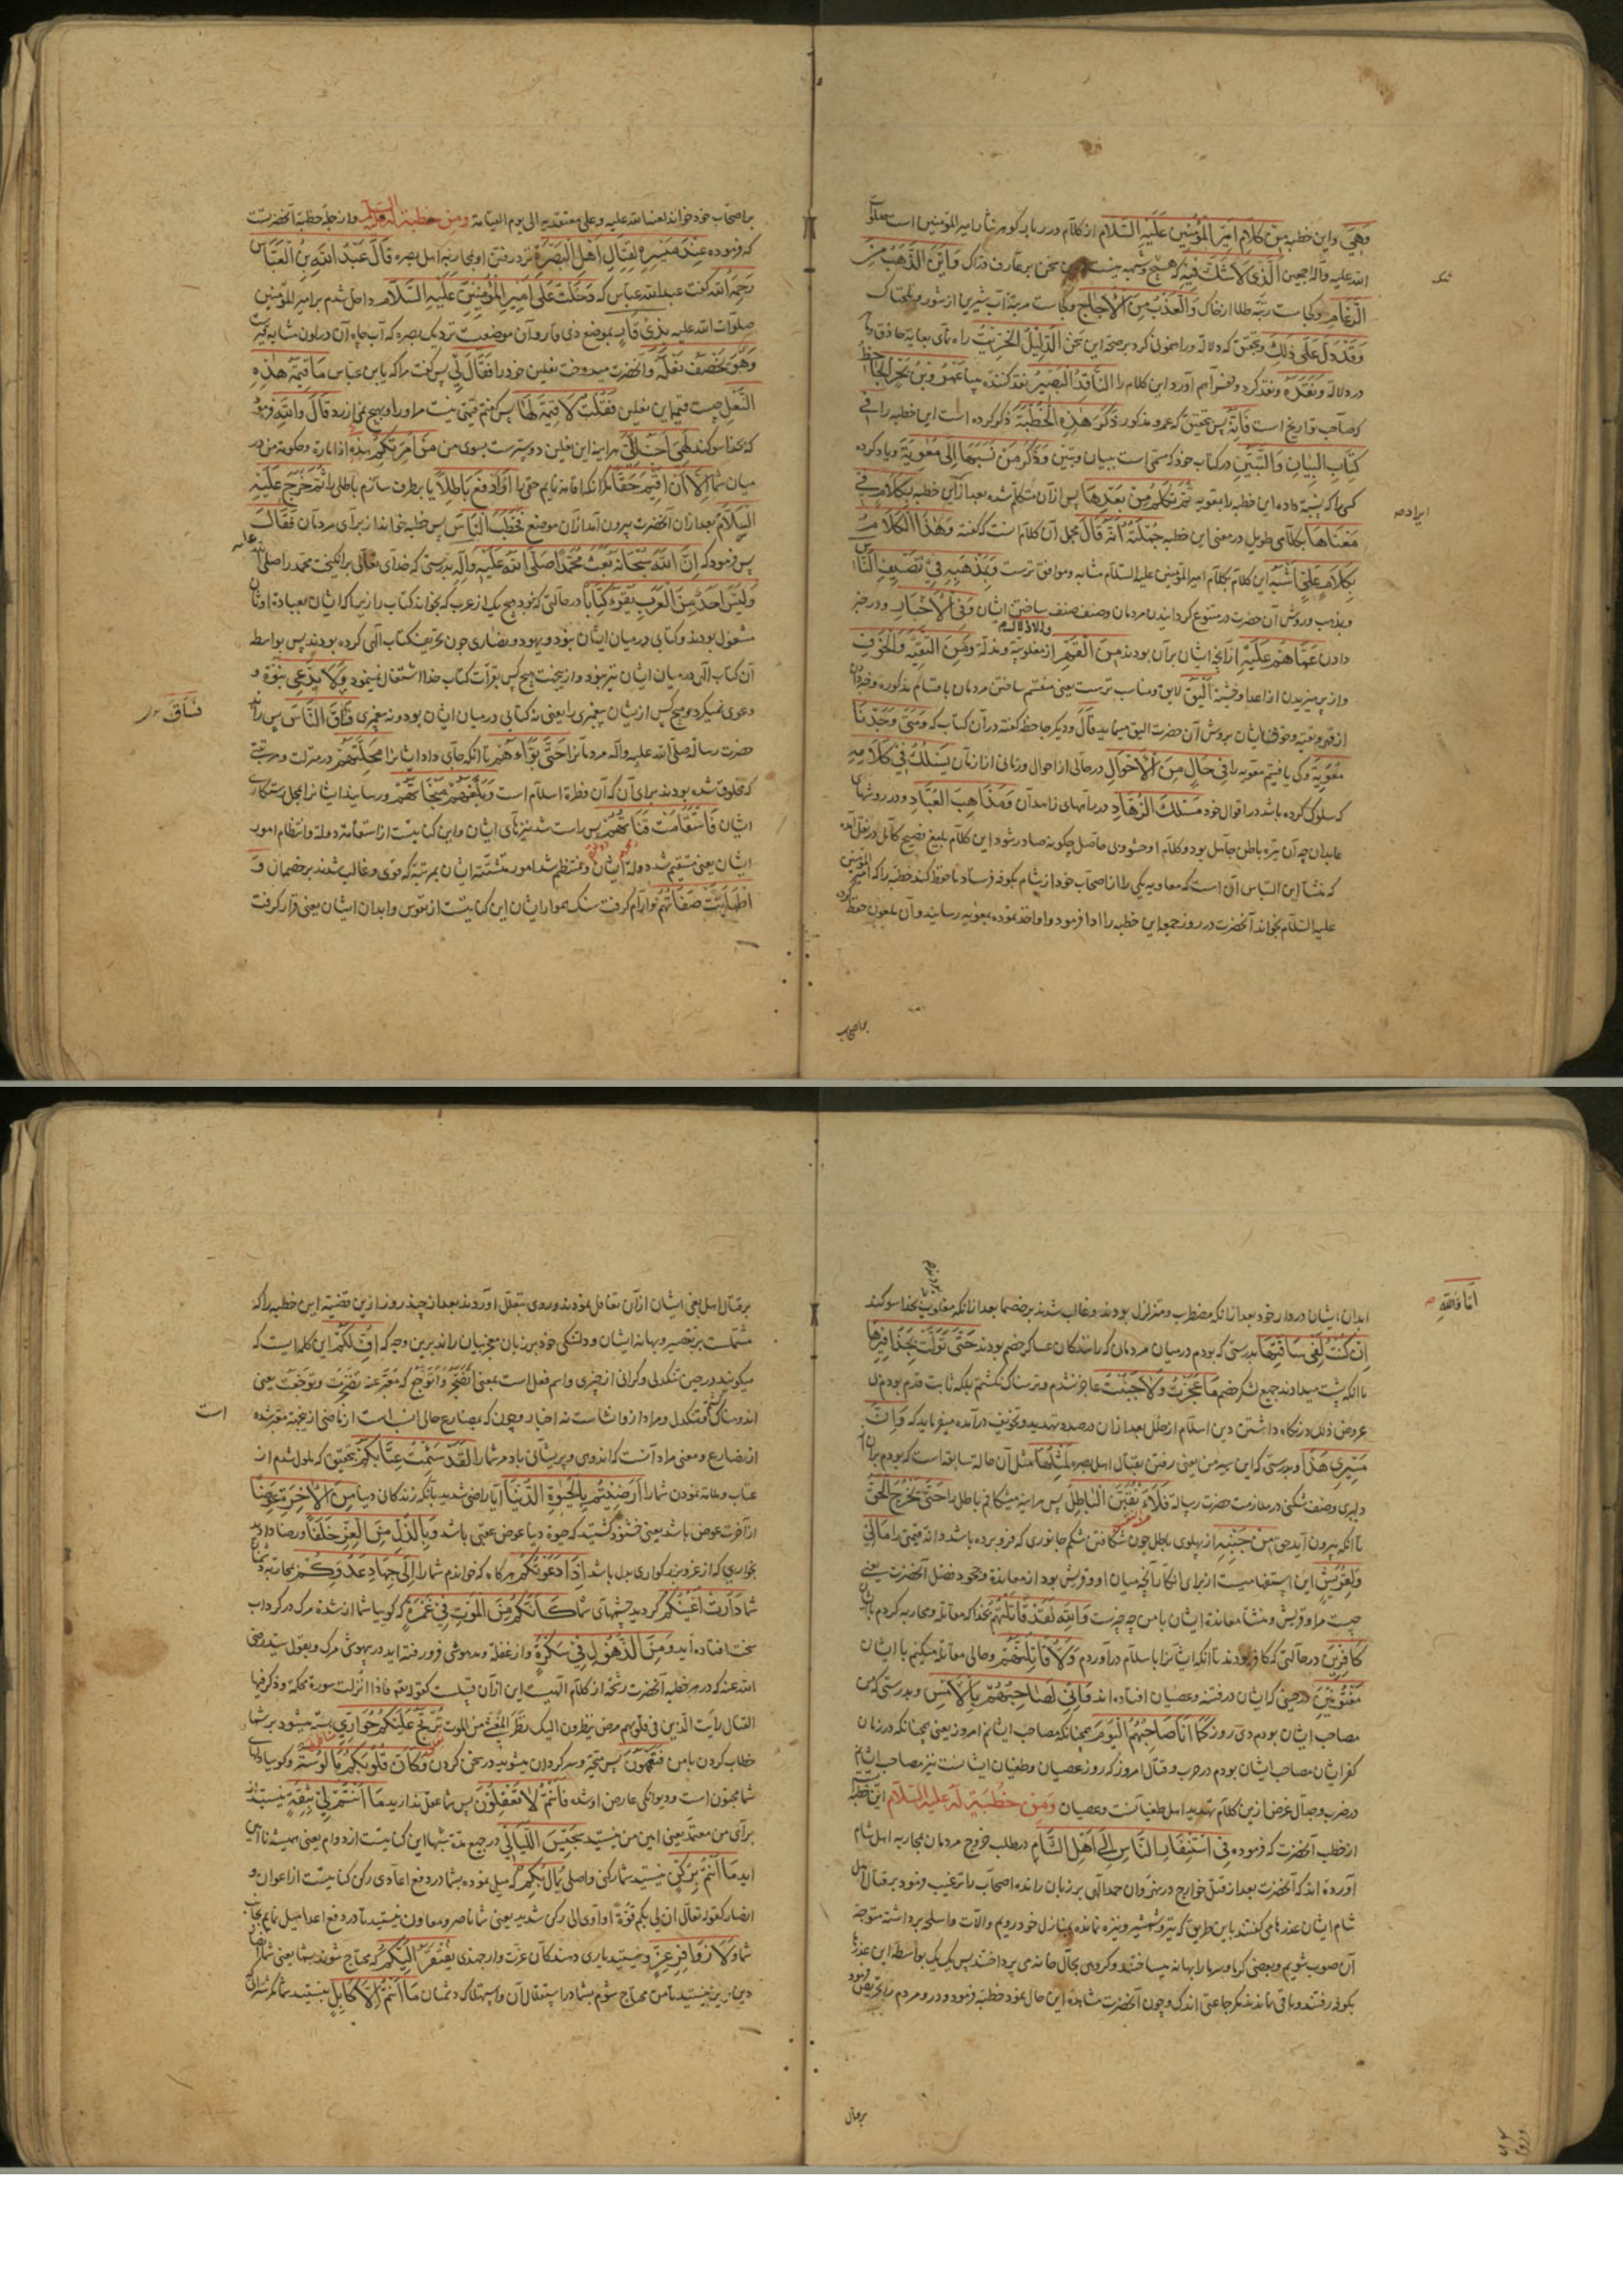 وَهِیَ واین خطبه مِنْ کَلَامِ اَمِیرِ الْمُؤْمِنِینَ عَلَیْهِ السَّلَام از کلام درر بار کوهر نثار امیر المؤمنین است صلوات
الله علیه وآله اجمعین الَّذِی لَا شَکَّ فِیهِ که هیچ شبهه نیست سخن بر عارف دراک وَاَیْنَ الذَّهَبُ مِنَ
الرَّغَامِ وکجاست رتبه طلا از خاک وَالْعَذْبُ مِنَ الْاُجَاجِ وکجاست مرتبه آب شیرین از شور وتلخناک
وَقَدْ دَلَّ عَلَی ذٰلِکَ وبتحقیق که دلاله وراهنمونی کرد بر صحة این سخن الدَّلِیلُ الْخِرِّیتُ راه نمای بغایة حاذق وماهر
در دلالة وَنَقَدَهُ ونقد کرد این کلام را النَّاقِدُ الْبَصِیرُ نقد کننده بینا عَمْرُو بْنُ بَحْرٍ الْجَاحِظُ
که صاحب تواریخ است فَاِنَّهُ پس بتحقیق که عمرو مذکور ذَکَرَ هٰذِهِ الْخُطْبَةَ ذکر کرده است این خطبه را فِی
کِتَابِ الْبَیَانِ وَالتَّبْیِینِ در کتاب خود که مسمّی است ببیان وتبیین وَذَکَرَ مَنْ نَسَبَهَا اِلَی مُعٰوِیَةَ ویاد کرده
کسی را که نسبة داده این خطبه را بمعویه ثُمَّ تَکَلَّمَ مِنْ بَعْدِهَا پس از آن متکلّم شده بعد از این خطبه بِکَلَامٍ فِی
مَعْنَاهَا بکلامی طویل در معنی این خطبه جُمْلَتُهُ اَنَّهُ قَالَ مجمل آن کلام اینست که گفته وَهٰذَا الْکَلَامُ
بِکَلَامِ عَلِیٍّ اَشْبَهُ این کلام بکلام امیر المؤمنین علیه السلام مشابه وموافق ترست وَبِمَذْهَبِهِ فِی تَصْنِیفِ النَّاسِ
وبمذهب وروش آن حضرت در متنوع کردانیدن مردمان وصنف صنف ساختن ایشان وَفِی الْاِخْبَارِ ودر خبر
دادن عَمَّا هُمْ عَلَیْهِ از آنچه ایشان بر آن بودند مِنَ الْقَهْرِ وَالْاِذْلَالِ از مغلوبیّة ومذلّة وَمِنَ التَّقِیَّةِ وَالْخَوْفِ
از قهر وتقیّه وخوف ایشان بروش آن حضرت الیق مینماید قَالَ ودیکر جاحظ گفته در آن کتاب که وَمَتَی وَجَدْنَا
مُعٰوِیَةَ وکی یافتیم معویه را فِی حَالٍ مِنَ الْاَحْوَالِ در حالی از احوال وزمانی از ازمان یَسْلُکُ فِی کَلَامِهِ
که سلوک کرده باشد در اقوال خود مَسْلَکَ الزُّهَّادِ در راههای زاهدان وَمَذَاهِبَ الْعُبَّادِ ودر روشهای
علیه السلام بخواند آنحضرت در روز جمعه این خطبه را ادا فرمود واو اخذ نموده بمعویه رسانید وآن ملعون حفظ کرده
باصحاب
باصحاب خود خواند لعنه الله علیه وعلی معتقدیه الی یوم القیامة وَمِنْ خُطْبَةٍ لَهُ عَلَیْهِ السَّلَامُ واز جمله خطبة آنحضرتست
که فرموده عِنْدَ مَسِیرِهِ لِقِتَالِ اَهْلِ الْبَصْرَةِ نزد رفتن او بمحاربه اهل بصره قَالَ عَبْدُ اللّٰهِ بْنُ الْعَبَّاسِ
رَحِمَهُ اللّٰه گفت عبد الله عباس که دَخَلْتُ عَلَی اَمِیرِ الْمُؤْمِنِینَ عَلَیْهِ السَّلَام داخل شدم بر امیر المؤمنین
صلوات الله علیه بِذِی قَارٍ بموضع ذی قار وآن موضعیست نزدیک بصره که آب چاه آن در لون مشابه قیرست
وَهُوَ یَخْصِفُ نَعْلَهُ وآنحضرت میدوخت نعلین خود را فَقَالَ لِی پس گفت مرا که یا بن عباس مَا قِیمَةُ هٰذِهِ
النَّعْلِ چیست قیمة این نعلین فَقُلْتُ لَا قِیمَةَ لَهَا پس گفتم قیمتی نیست مر او را وبهیچ نمی ارزد قَالَ وَاللّٰهِ فرمود
که بخدا سوکند لَهِیَ اَحَبُّ اِلَیَّ هر آینه این نعلین دوسترست بسوی من مِنْ اِمْرَتِکُمْ هٰذِهِ از امارة وحکومة من در
میان شما اِلَّا اَنْ اُقِیمَ حَقًّا مگر آنکه اقامة نمایم حقی را اَوْ اَدْفَعَ بَاطِلًا یا برطرف سازم باطلی را ثُمَّ خَرَجَ عَلَیْهِ
السَّلَامُ بعد از آن آنحضرت بیرون آمد از آن موضع فَخَطَبَ النَّاسَ پس خطبه خواند از برای مردمان فَقَالَ
پس فرمود که اِنَّ اللّٰهَ سُبْحَانَهُ بَعَثَ مُحَمَّدًا صَلَّی اللّٰهُ عَلَیْهِ وَآلِهِ بدرستی که خدای تعالی برانکیخت محمد را صلی الله علیه
وَلَیْسَ اَحَدٌ مِنَ الْعَرَبِ یَقْرَءُ کِتَابًا در حالتی که نبود هیچ یک از عرب که بخواند کتاب را زیرا که ایشان بعبادة اوثان
مشغول بودند وکتابی در میان ایشان نبود ویهود ونصاری چون تحریف کتاب الهی کرده بودند پس بواسطه
آن کتاب الهی در میان ایشان نیز نبود واز این جهت هیچ کس بقرائت کتاب خدا اشتغال نمینمود وَلَا یَدَّعِی نُبُوَّةً و
دعوی نمیکرد هیچ کس از ایشان پیغمبری را یعنی نه کتابی در میان ایشان بود ونه پیغمبری فَسَاقَ النَّاسَ پس راند
حضرت رسالة صلی الله علیه وآله مردمانرا حَتَّی بَوَّاَهُمْ تا آنکه جای داد ایشانرا مَحَلَّتَهُمْ در منزلت ومرتبتی
که مخلوق شده بودند برای آن که آن فطرة اسلام است وَبَلَّغَهُمْ مَنْجَاتَهُمْ ورسانید ایشانرا بمحل رستکاری
ایشان فَاسْتَقَامَتْ قَنَاتُهُمْ پس راست شد نیزهای ایشان واین کنایتست از استقامة دولة وانتظام امور
ایشان یعنی مستقیم شد دولة ایشان ومنتظم شد امور متشتّته ایشان بمرتبه که قوی وغالب شدند بر خصمان وَ
اطْمَاَنَّتْ صَفَاتُهُمْ وآرام گرفت سنک هموار ایشان این کنایتست از نفوس وابدان ایشان یعنی قرار گرفت
فَسَاقَ
اَمَا وَاللّٰهِ
ابدان ایشان در دار خود بعد از آنکه مضطرب ومتزلزل بودند وغالب شدند بر خصما بعد از آنکه مغلوب بودند بخدا سوکند
اِنْ کُنْتُ لَفِی سَاقَتِهَا بدرستی که بودم در میان مردمان که رانندکان عساکر خصم بودند حَتَّی تَوَلَّتْ بِحَذَافِیرِهَا
تا آنکه پشت میدادند جمیع لشکر خصم مَا عَجَزْتُ وَلَا جَبُنْتُ عاجز نشدم وترسناک نکشتم بلکه ثابت قدم بودم بی
عروض ذلل در نکاه داشتن دین اسلام از خلل بعد از آن در صدد تهدید وتخویف درآمده میفرماید که وَاِنَّ
مَسِیرِی هٰذَا وبدرستی که این سیر من یعنی رفتن بقتال اهل بصره لِمِثْلِهَا مثل آن حالة سابقه است که بودم بر آن از
دلیری وصف شکنی در ملازمت حضرت رسالة فَلَاَنْقُبَنَّ الْبَاطِلَ پس هر آینه میشکافم باطل را حَتَّی یَخْرُجَ الْحَقُّ
تا آنکه بیرون آید حق مِنْ جَنْبِهِ از پهلوی باطل چون شکافتن شکم جانوری که فرو برده باشد دانه قیمتی را مَا لِی
وَلِقُرَیْشٍ این استفهامیست از برای انکار آنچه میان او وقریش بود از معاندة وجحود فضل آنحضرت یعنی
چیست مرا وقریش ومنشأ معانده ایشان با من چه چیزست وَاللّٰهِ لَقَدْ قَاتَلْتُهُمْ بخدا که مقاتله ومحاربه کردم با ایشان
کَافِرِینَ در حالتی که کافر بودند تا آنکه ایشانرا باسلام درآوردم وَلَاُقَاتِلَنَّهُمْ وحالی مقاتله میکنم با ایشان
مَفْتُونِینَ در حینی که ایشان در فتنه وعصیان افتاده اند وَاِنِّی لَصَاحِبُهُمْ بِالْاَمْسِ وبدرستی که من
مصاحب ایشان بودم دی روز کَمَا اَنَا صَاحِبُهُمُ الْیَوْمَ همچنانکه مصاحب ایشانم امروز یعنی همچنانکه در زمان
کفر ایشان مصاحب ایشان بودم در حرب وقتال امروز که روز عصیان وطغیان ایشانست نیز مصاحب ایشانم
در ضرب وجدال غرض ازین کلام تهدید اهل طغیانست وعصیان وَمِنْ خُطْبَةٍ لَهُ عَلَیْهِ السَّلَامُ این خطبه
از خطب آنحضرت که فرموده فِی اسْتِنْفَارِ النَّاسِ اِلَی اَهْلِ الشَّامِ در طلب خروج مردمان بمحاربه اهل شام
آورده اند که آنحضرت بعد از قتل خوارج در نهروان حمد الهی بر زبان رانده اصحاب را ترغیب فرمود بر قتال اهل
شام ایشان عذرها می کفتند باین طریق که تیر وشمشیر ونیزه نمانده بمنازل خود رویم وآلات واسلحه برداشته متوجه
آن صوب شویم وبعضی کرما وسرما را بهانه میساختند وکروهی بحال خانه می پرداختند پس یک یک بواسطه این عذرها
بکوفه رفتند وباقی نماندند مکر جماعتی اندک وچون آنحضرت مشاهده این حال نمود خطبه فرمود ودر او مردم را تحریض نمود
بر قتال
بر قتال اهل بغی ایشان از آن تغافل نمودند وروی بتعلل آوردند بعد از چند روز ازین قضیه این خطبه را که
مشتملست بر تقصیر وبهانه ایشان ودلتنکی خود بر زبان معجز بیان راند برین وجه که اُفٍّ لَکُمْ این کلمه ایست که
میکویند در حین تنکدلی وکرانی از چیزی واسم فعل است بمعنی اَتَضَجَّرُ وَاَتَوَجَّعُ که معبّر عنه بضجرت وتوجّعت یعنی
از مضارع ومعنی مراد آنست که اندوه وپریشانی باد مر شما را لَقَدْ سَئِمْتُ عِتَابَکُمْ بتحقیق که ملول شدم از
عتاب وملامة نمودن شما را اَرَضِیتُمْ بِالْحَیٰوةِ الدُّنْیَا آیا راضی شدید بآنکه زندکانی دنیا مِنَ الْاٰخِرَةِ عِوَضًا
از آخرت عوض باشد یعنی خشنود کشتید که حیوة دنیا عوض عقبی باشد وَبِالذُّلِّ مِنَ الْعِزِّ خَلَفًا ورضا دادید
بخواری که از عز وبزرکواری بدل باشد اِذَا دَعَوْتُکُمْ هرکاه که خواندم شما را اِلَی جِهَادِ عَدُوِّکُمْ بمحاربه دشمنان
شما دَارَتْ اَعْیُنُکُمْ گردید چشمهای شما کَاَنَّکُمْ مِنَ الْمَوْتِ فِی غَمْرَةٍ که کوییا شما از شدة مرک در کرداب
سخت افتاده اید وَمِنَ الذُّهُولِ فِی سَکْرَةٍ واز غفلة ومدهوشی فرو رفته اید در بیهوشی مرک وبقول سید رضی
القتال رأیت الّذین فی قلوبهم مرض ینظرون الیک نظر المغشی من الموت یُرْتَجُ عَلَیْکُمْ حَوَارِی بسته میشود بر شما
خطاب کردن با من فَتَعْمَهُونَ پس متحیر وسرکردان میشوید در سخن کردن وَکَاَنَّ قُلُوبَکُمْ مَأْلُوسَةٌ وکوییا دلهای
شما مجنون است ودیوانکی عارض او شده فَاَنْتُمْ لَا تَعْقِلُونَ پس شما عقل ندارید مَا اَنْتُمْ لِی بِثِقَةٍ نیستید از
برای من معتمد یعنی امین من نیستید سَجِیسَ اللَّیَالِی در جمیع مدة شبها این کنایتست از دوام یعنی همیشه نا امین
اید مَا اَنْتُمْ بِرُکْنٍ نیستید شما رکنی واصلی یُمَالُ بِکُمْ که میل نموده بشما در دفع اعادی رکن کنایتست از اعوان و
انصار کقوله تعالی ان لی بکم قوّة او آوی الی رکن شدید یعنی شما ناصر ومعاون نیستید تا در دفع اعدا میل نمایم بجانب
شما وَلَا زَوَافِرِ عِزٍّ ونیستید یاری دهندکان عزت وارجمندی یُفْتَقَرُ اِلَیْکُمْ که محتاج شوند بشما یعنی شما از انصار
دین نیستید تا من محتاج شوم بشما در استقلال آن واستهلاک دشمنان مَا اَنْتُمْ اِلَّا کَاِبِلٍ نیستید شما مکر شتران
است